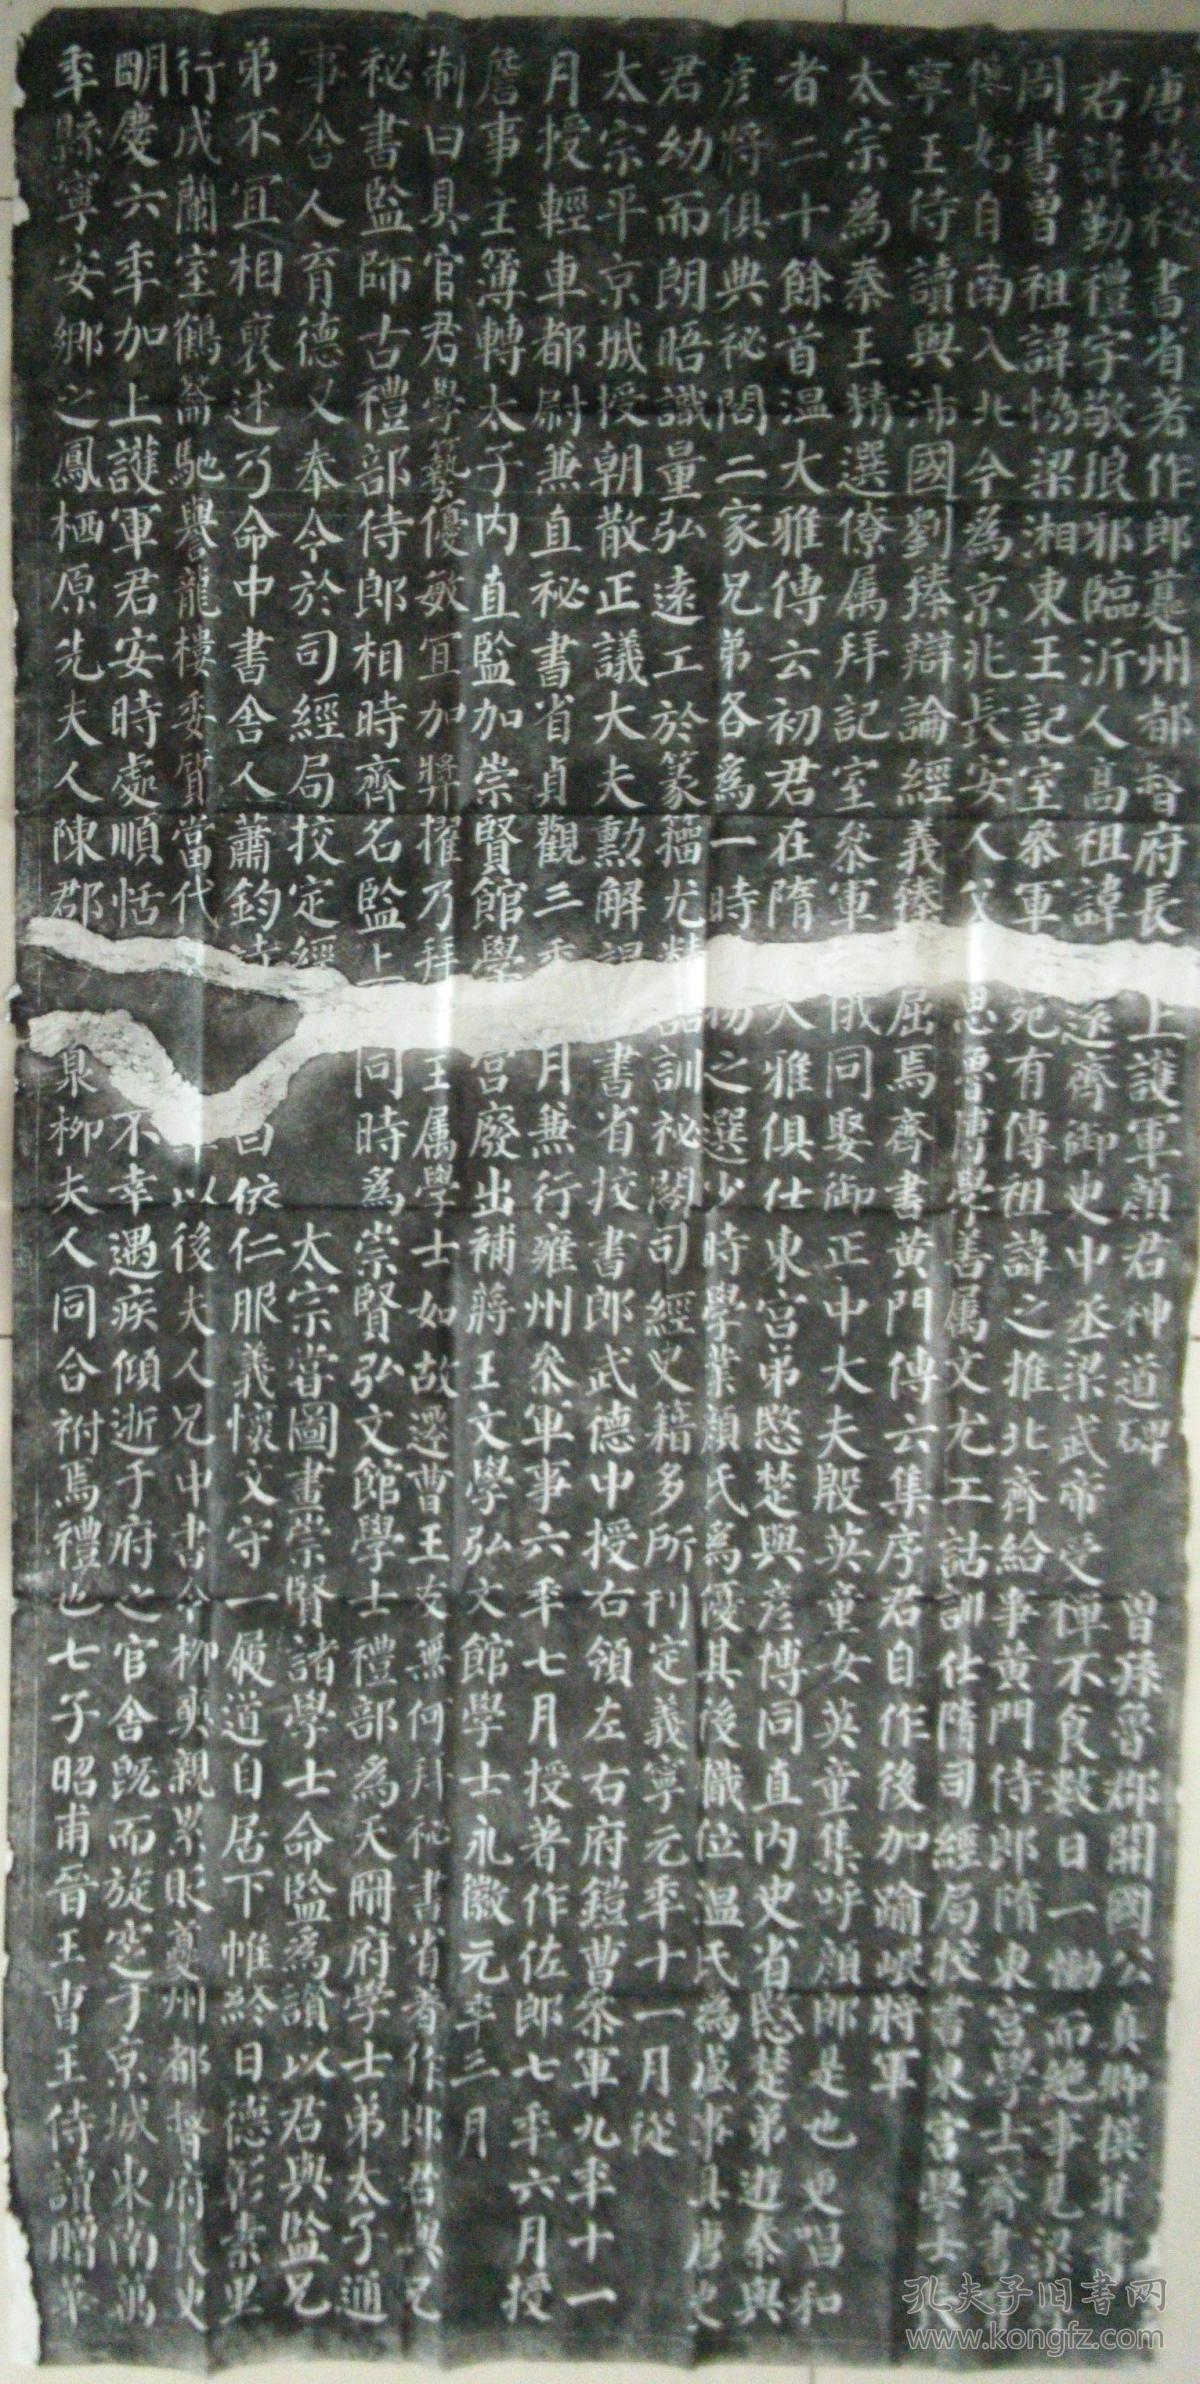 唐故秘書省著作郎夔州都督府長 上護軍顏君神道碑
曾孫魯郡開國公真卿撰并書
君諱勤禮字敬琅邪臨沂人高祖諱 遠齊御史中丞梁武帝受禪不食數日一慟而絕事見梁
周書曾祖諱協梁湘東王記室參軍 苑有傳祖諱之推北齊給事黃門侍郎隋東宮學士齊書
始自南入北今為京兆長安人父 思魯博學善屬文尤工詁訓仕隋司經局校書東宮學士長
寧王侍讀與沛國劉臻辯論經義臻 屈焉齊書黃門傳云集序君自作後加踰岷將軍
太宗為秦王精選僚屬拜記室參軍 儀同娶御正中大夫殷英童女英童集呼顏郎是也更唱和
者二十餘首溫大雅傳云初君在隋 大雅俱仕東宮弟愍楚與彥博同直內史省愍楚弟遊秦與
彥將俱典祕閣二家兄弟各為一時 之選少時學業顏氏為優其後職位溫氏為盛事具唐史
君幼而朗晤識量弘遠工於篆籀尤精 詁訓祕閣司經史籍多所刊定義寧元年十一月從
太宗平京城授朝散正議大夫勳解 書省校書郎武德中授右領左右府鎧曹參軍九年十一
月授輕車都尉兼直祕書省貞觀三年 月兼行雍州參軍事六年七月授著作佐郎七年六月授
詹事主簿轉太子內直監加崇賢館學 宮廢出補蔣王文學弘文館學士永徽元年三月
制曰具官君學藝優敏宜加獎擢乃拜 王屬學士如故遷曹王友無何拜祕書省著作郎君與兄
祕書監師古禮部侍郎相時齊名監 同時為崇賢弘文館學士禮部為天冊府學士弟太子通
事舍人育德又奉令於司經局校定經 太宗嘗圖畫崇賢諸學士命監為讚以君與監兄
弟不宜相褒述乃命中書舍人蕭鈞 曰依仁服義懷文守一履道自居下帷終日德彰素里
行成蘭室鶴籥馳譽龍樓委質當代 以後夫人兄中書令柳奭親累貶夔州都督府長史
明慶六年加上護軍君安時處順恬 不幸遇疾傾逝于府之官舍既而旋窆于京城東南萬
年縣寧安鄉之鳳栖原先夫人陳郡 泉柳夫人同合祔焉禮也七子昭甫晉王曹王侍讀贈華
孔夫子旧书网
www.kongfz.com